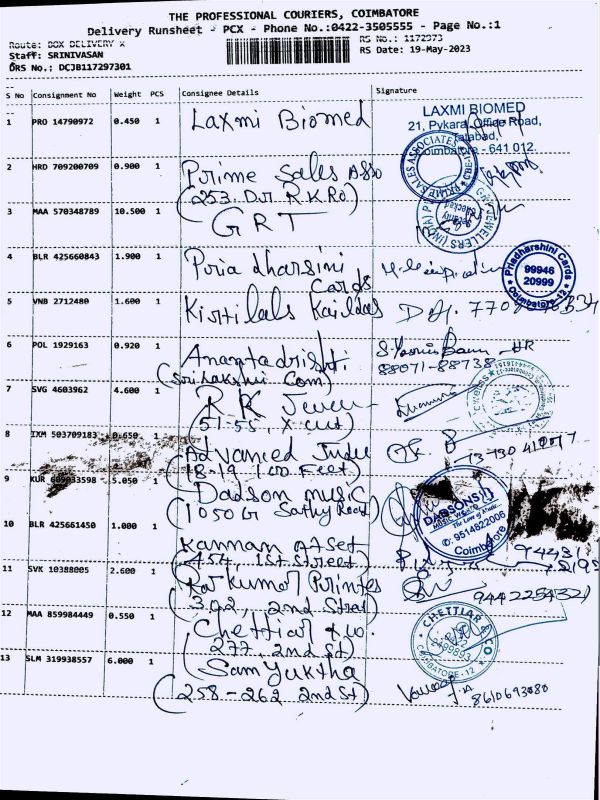 THE PROFESSIONAL COURIERS, COIMBATORE
Delivery Runsheet - PCX - Phone No.:0422-3505555 - Page No.:1
Route: BOX DELIVERY X
RS No.: 1172973
Staff: SRINIVASAN
RS Date: 19-May-2023
DRS No.: DCJB117297301
S No Consignment No Weight PCS Consignee Details Signature
1 PRO 14790972 0.450 1 Laxmi Biomed
LAXMI BIOMED
21, Pykara, Office Road,
Coimbatore - 641 012.
2 HRD 709200709 0.900 1 Prime Sales Asso
(253 Dr R K Ro)
PRIME SALES ASSOCIATES
3 MAA 570348789 10.500 1 GRT
JEWELLERS (INDIA)
Security
Checked
4 BLR 425660843 1.900 1 Pria dharsini
Cards
Priadharshini Cards
99946
20999
Coimbatore-12
5 VNB 2712480 1.600 1 Kirtilals Kaildas
6 POL 1929163 0.920 1 Anantadrisht.
(Sri Lakshmi Com)
HR
88071-88738
7 SVG 4603962 4.600 1 R K Jewe
(51-55, X cut)
8 IXM 503709183 0.650 1 Advanced
(18-19 100 Feet)
9 KUR 5.050 1 Dadson music
(1050 G Sathy Road)
DADSONS
Coimbatore
9514822006
10 BLR 425661450 1.000 1 Kannan
(454, 1st Street)
94431
11 SVK 10388005 2.600 1 Raj kumar Printes
(302, 2nd Street)
9442254321
12 MAA 859984449 0.550 1 Chettiar & co.
(277, 2nd St)
CHETTIAR & CO.
COIMBATORE-12
13 SLM 319938557 6.000 1 Sam Yuktha
(258-262 2nd St)
8610693080